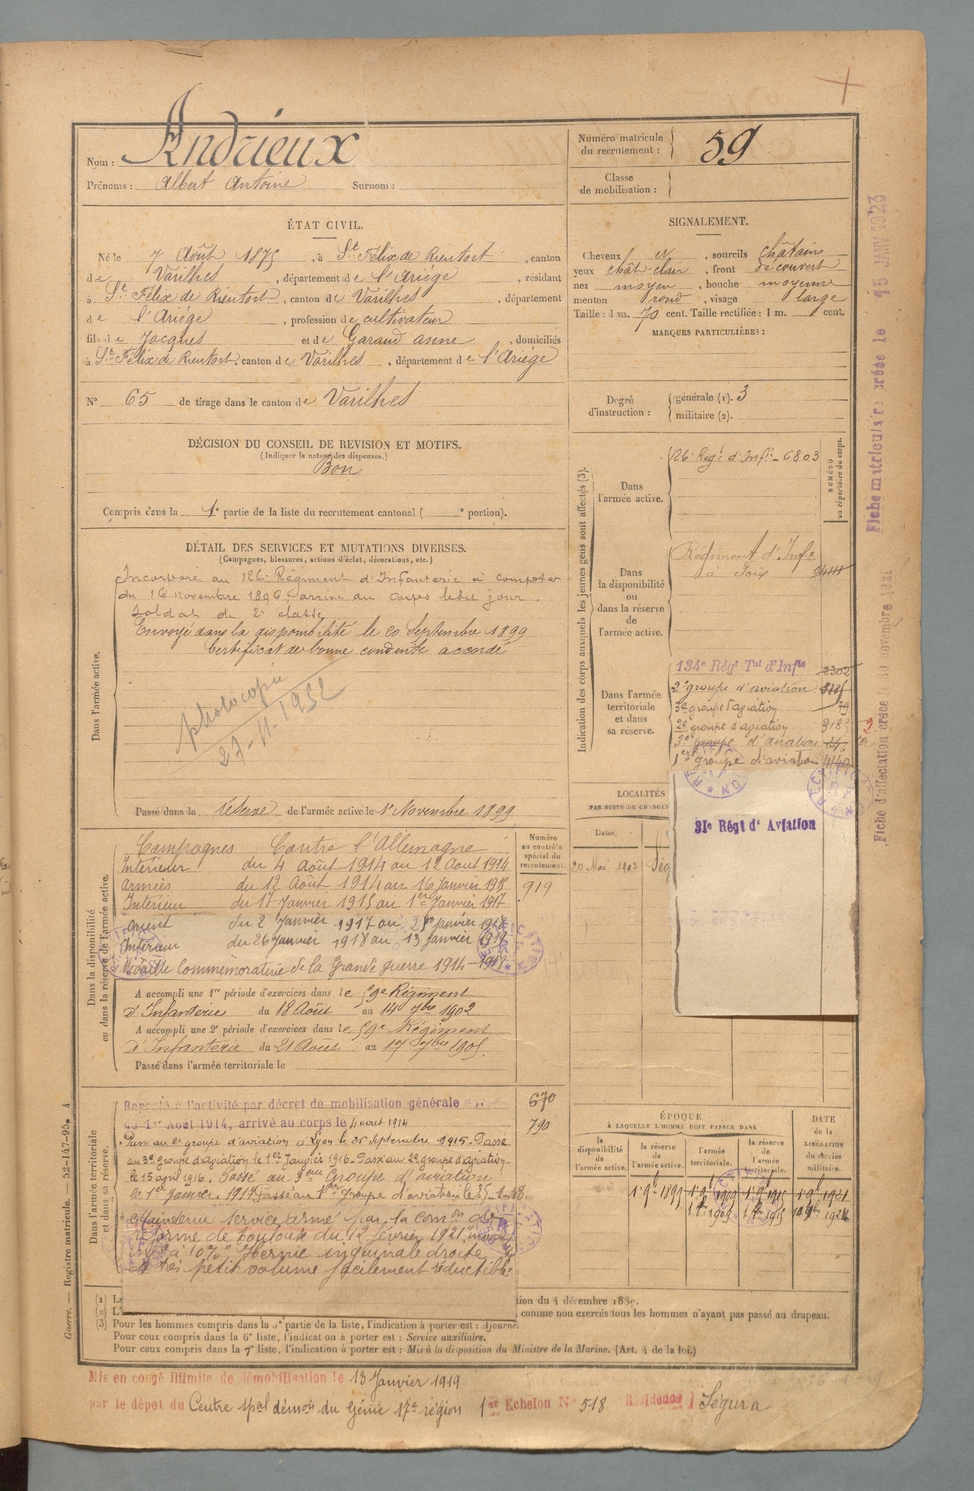 Nom : Andrieux
Prénoms : Albert Antoine Surnom :
Numéro matricule du recrutement : 59
Classe de mobilisation :
ÉTAT CIVIL.
Né le 7 Août 1875, à St Félix de Rieutort, canton
de Varilhes, département de l'Ariège, résidant
à St Félix de Rieutort, canton de Varilhes, département
de l'Ariège, profession de cultivateur
fils de Jacques et de Garaud anne, domiciliés
à St Félix de Rieutort, canton de Varilhes, département de l'Ariège
N° 65 de tirage dans le canton de Varilhes
SIGNALEMENT.
Cheveux et, sourcils châtains
yeux chât-clair, front découvert
nez moyen, bouche moyenne
menton rond, visage large
Taille : 1 m. 70 cent. Taille rectifiée : 1 m. cent.
MARQUES PARTICULIÈRES :
Degré d'instruction : générale (1). 3
militaire (2).
DÉCISION DU CONSEIL DE REVISION ET MOTIFS.
(Indiquer la nature des dispenses.)
Bon
Compris dans la 1e partie de la liste du recrutement cantonal ( e portion).
DÉTAIL DES SERVICES ET MUTATIONS DIVERSES.
(Campagnes, blessures, actions d'éclat, décorations, etc.)
Dans l'armée active.
Incorporé au 126e Régiment d'Infanterie à compter
du 16 novembre 1896, arrivé au corps ledit jour.
Soldat de 2e classe
Envoyé dans la disponibilité le 20 Septembre 1899
Certificat de bonne conduite accordé
photocopie
27-11-1952
Passé dans la réserve de l'armée active le 1er Novembre 1899
Indication des corps auxquels les jeunes gens sont affectés (3).
NUMÉRO au répertoire du corps.
Dans l'armée active.
126e Regt d'Infie 6803
Dans la disponibilité ou dans la réserve de l'armée active.
Régiment d'Infie
à Foix
Dans l'armée territoriale et dans sa réserve.
134e Régt Tal d'Infie 2302
2e groupe d'aviation
3e groupe d'aviation 79
2e groupe d'aviation
3e groupe d'aviation
1er groupe d'aviation
LOCALITÉS
PAR SUITE DE CHANGEM
Dates.
20 Mai 1902
31e Régt d'Aviation
Dans la disponibilité ou dans la réserve de l'armée active.
Numéro au contrôle spécial du recrutement.
919
Campagnes Contre l'Allemagne
Intérieur du 4 Août 1914 au 12 Août 1914
Armées du 12 Août 1914 au 16 Janvier 1915
Intérieur du 17 Janvier 1915 au 1er Janvier 1917
Orient du 2 Janvier 1917 au 25 janvier 1918
Intérieur du 26 Janvier 1918 au 13 Janvier 1919
Médaille Commémorative de la Grande guerre 1914-1918
A accompli une 1re période d'exercices dans le 59e Régiment
d'Infanterie du 18 Août au 14 7bre 1902
A accompli une 2e période d'exercices dans le 59e Régiment
d'Infanterie du 21 Août au 17 7bre 1905
Passé dans l'armée territoriale le
Dans l'armée territoriale et dans sa réserve.
670
790
Rappelé à l'activité par décret de mobilisation générale
du 1er Août 1914, arrivé au corps le 4 août 1914
Passé au 2e groupe d'aviation à Lyon le 25 Septembre 1915. Passé
au 3e groupe d'aviation le 1er Janvier 1916. Passé au 2e groupe d'aviation
le 15 avril 1916. Passé au 3eme Groupe d'aviation
le 1er janvier 1917. Passé au 1er Groupe d'aviation le 25-1-18.
Maintenu service armé par la comon de
réforme de Toulouse du 12 février 1921
à 10% "Hernie inguinale droite
très petit volume facilement réductible
ÉPOQUE
À LAQUELLE L'HOMME DOIT PASSER DANS
la disponibilité de l'armée active.
la réserve de l'armée active.
l'armée territoriale.
la réserve de l'armée territoriale.
DATE de la LIBÉRATION du service militaire.
1er 9bre 1899
(1) Le
tion du 4 décembre 1889.
(2) L'
comme non exercés tous les hommes n'ayant pas passé au drapeau.
(3) Pour les hommes compris dans la 5e partie de la liste, l'indication à porter est : Ajourné.
Pour ceux compris dans la 6e liste, l'indication à porter est : Service auxiliaire.
Pour ceux compris dans la 7e liste, l'indication à porter est : Mis à la disposition du Ministre de la Marine. (Art. 4 de la loi.)
Guerre. — Registre matricule. — 52-147-95. 4
Mis en congé illimité de démobilisation le 13 Janvier 1919
par le dépôt du Centre spal démob du Génie 17e région 1er Echelon N° 518 Résidence } Ségura
Fiche matriculaire créée le 15 JANV 1923
Fiche d'affectation créée le 30 novembre 1921